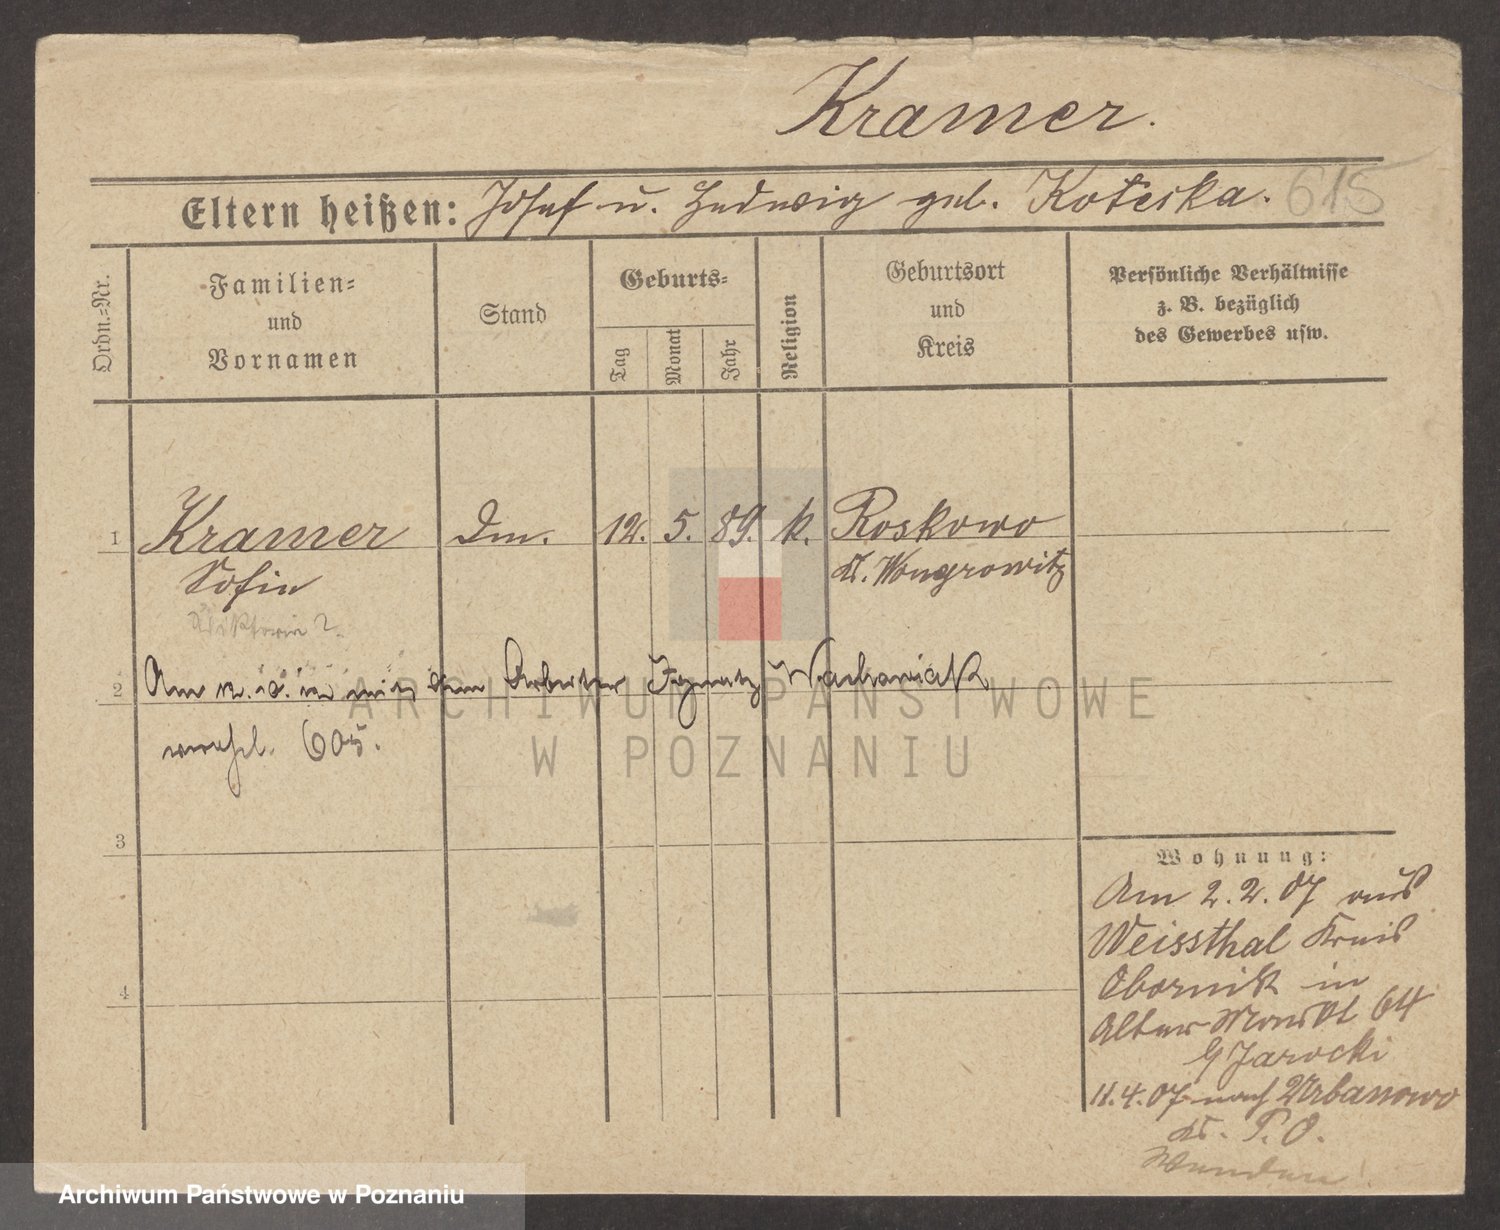 Kramer.
Eltern heißen: Josef u. Hedwig geb. Koteska. 615
Ordn.=Nr.
Familien=
und
Vornamen
Stand
Geburts=
Tag
Monat
Jahr
Religion
Geburtsort
und
Kreis
Persönliche Verhältnisse
z. B. bezüglich
des Gewerbes usw.
1 Kramer Dm. 12. 5. 89. k. Roskowo
Sofie Kr. Wongrowitz
2 Am mit dem Arbeiter Ignatz Wachowiak
verehel. 605.
3
4
Wohnung:
Am 2.2.07 aus
Weissthal Kreis
Obornik in
Alter Markt 64
Jarocki
11.4.07 nach Urbanowo
Kr. P. O.
ARCHIWUM PAŃSTWOWE
W POZNANIU
Archiwum Państwowe w Poznaniu